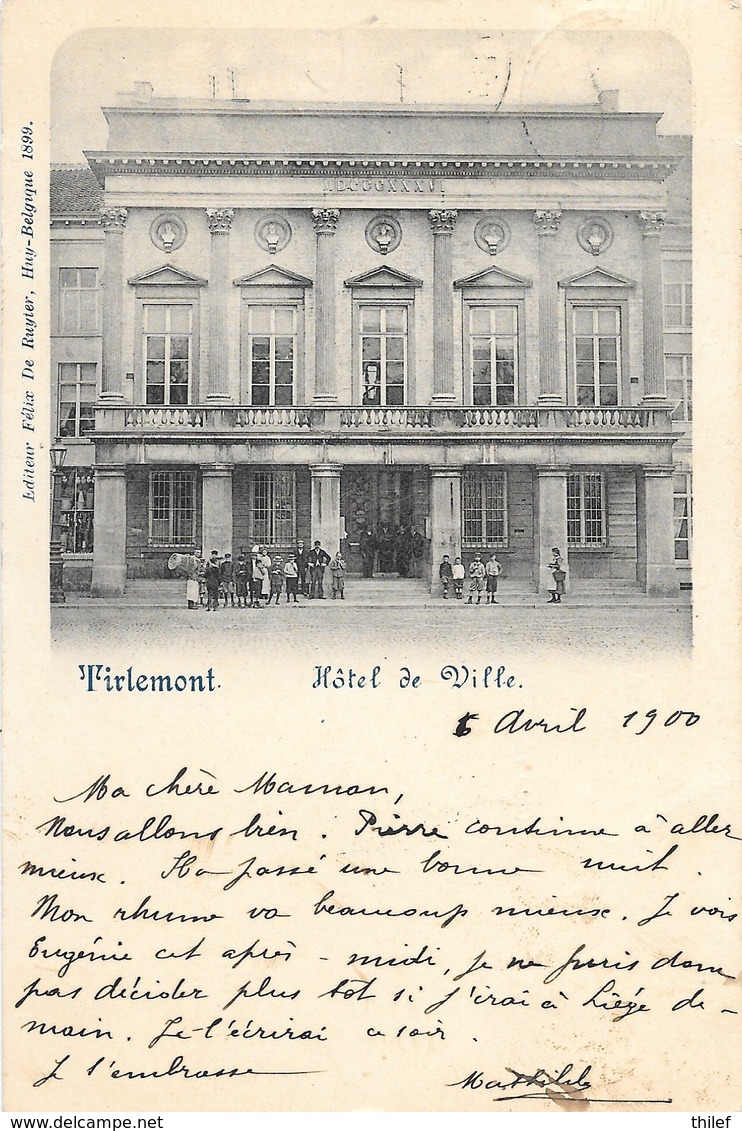 MDCCCXXXVI
Editeur Félix De Ruyter, Huy-Belgique 1899.
Tirlemont. Hôtel de Ville.
5 Avril 1900
Ma chère Maman,
Nous allons bien. Pierre continue à aller
mieux. Il a passé une bonne nuit.
Mon rhume va beaucoup mieux. Je vois
Eugénie cet après-midi, je ne puis donc
pas décider plus tôt si j'irai à Liége de-
main. Je t'écrirai ce soir.
Je t'embrasse
Mathilde
thilef